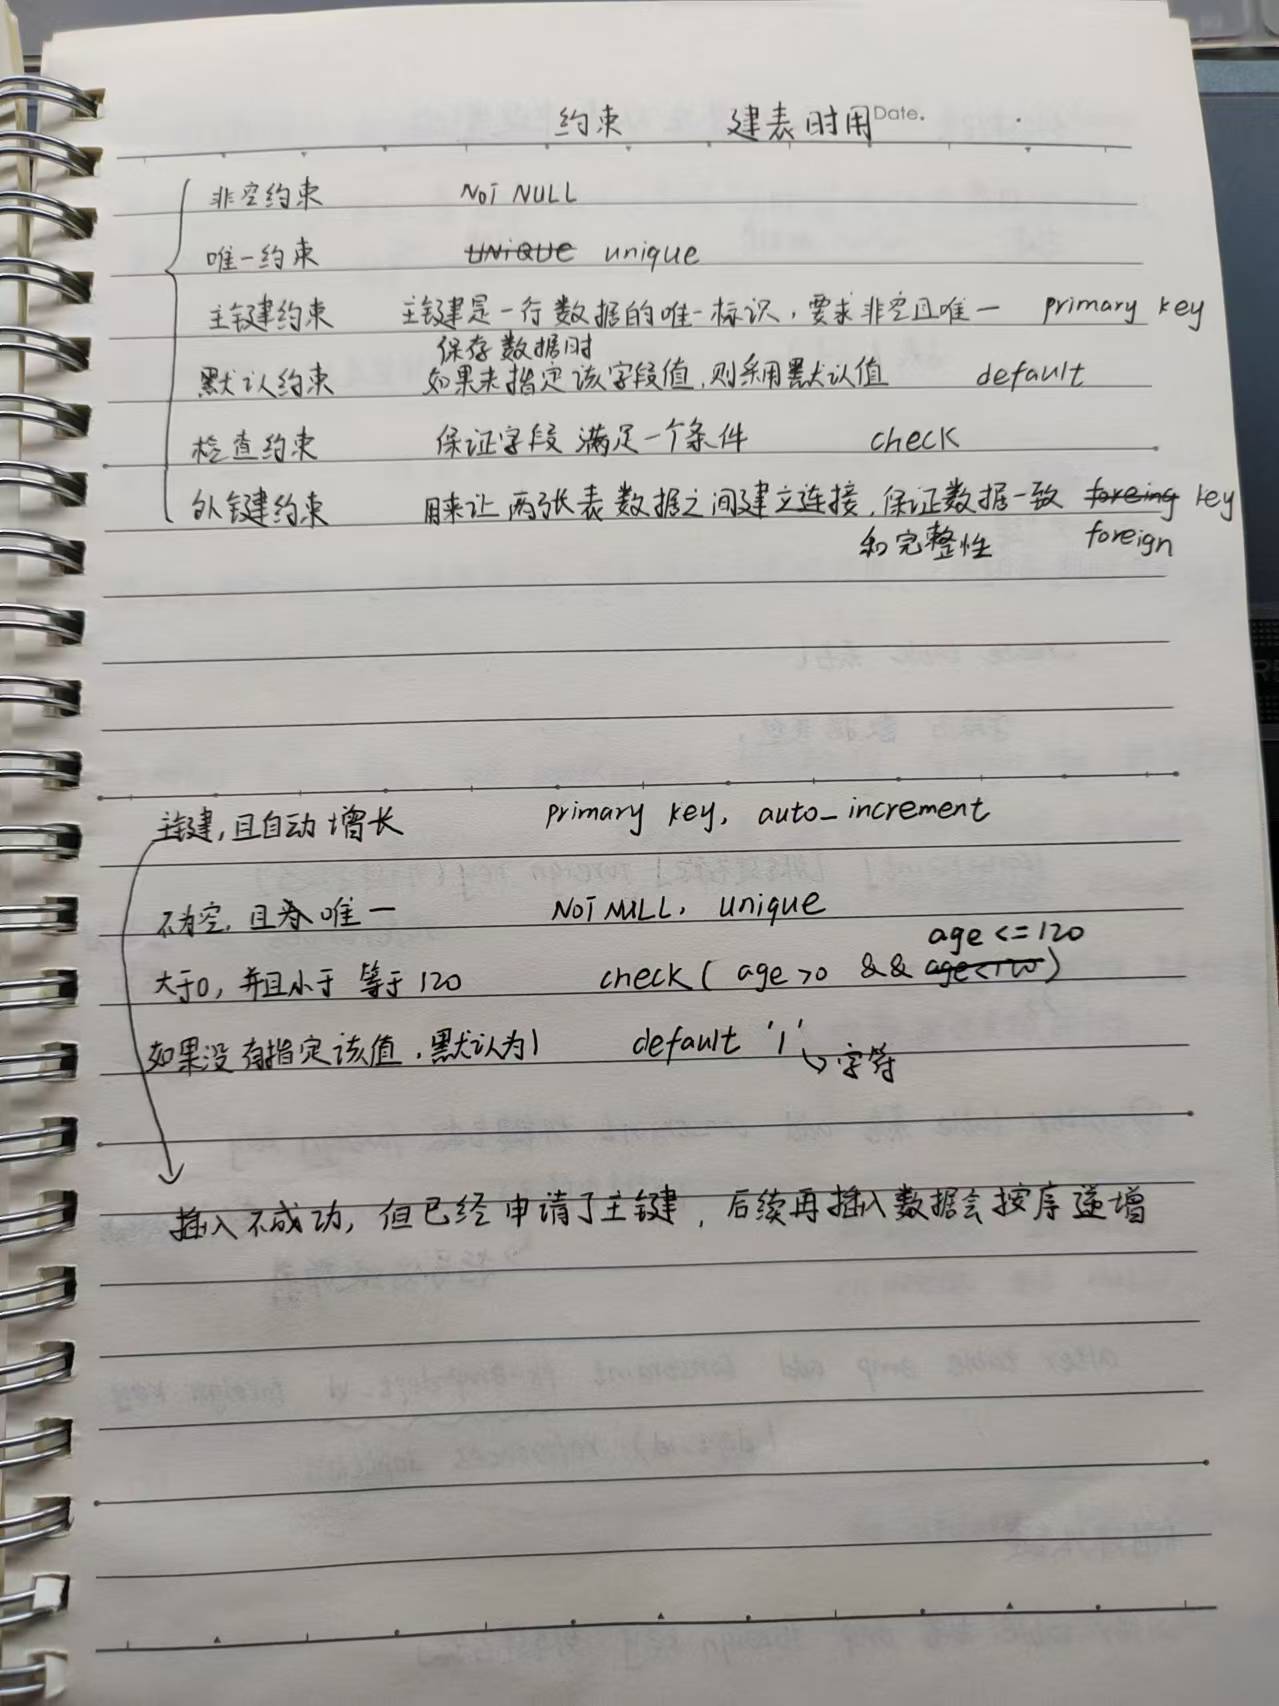 约束 建表时用 Date.
非空约束 NOT NULL
唯一约束 UNIQUE unique
主键约束 主键是一行数据的唯一标识，要求非空且唯一 primary key
保存数据时
默认约束 如果未指定该字段值，则采用默认值 default
检查约束 保证字段满足一个条件 check
外键约束 用来让两张表数据之间建立连接，保证数据一致 foreing key
和完整性 foreign
主键，且自动增长 primary key, auto_increment
不为空，且唯一 NOT NULL, unique
age <= 120
大于0，并且小于等于120 check ( age >0 && age<120 )
如果没有指定该值，默认为1 default '1'
字符
插入不成功，但已经申请了主键，后续再插入数据会按序递增